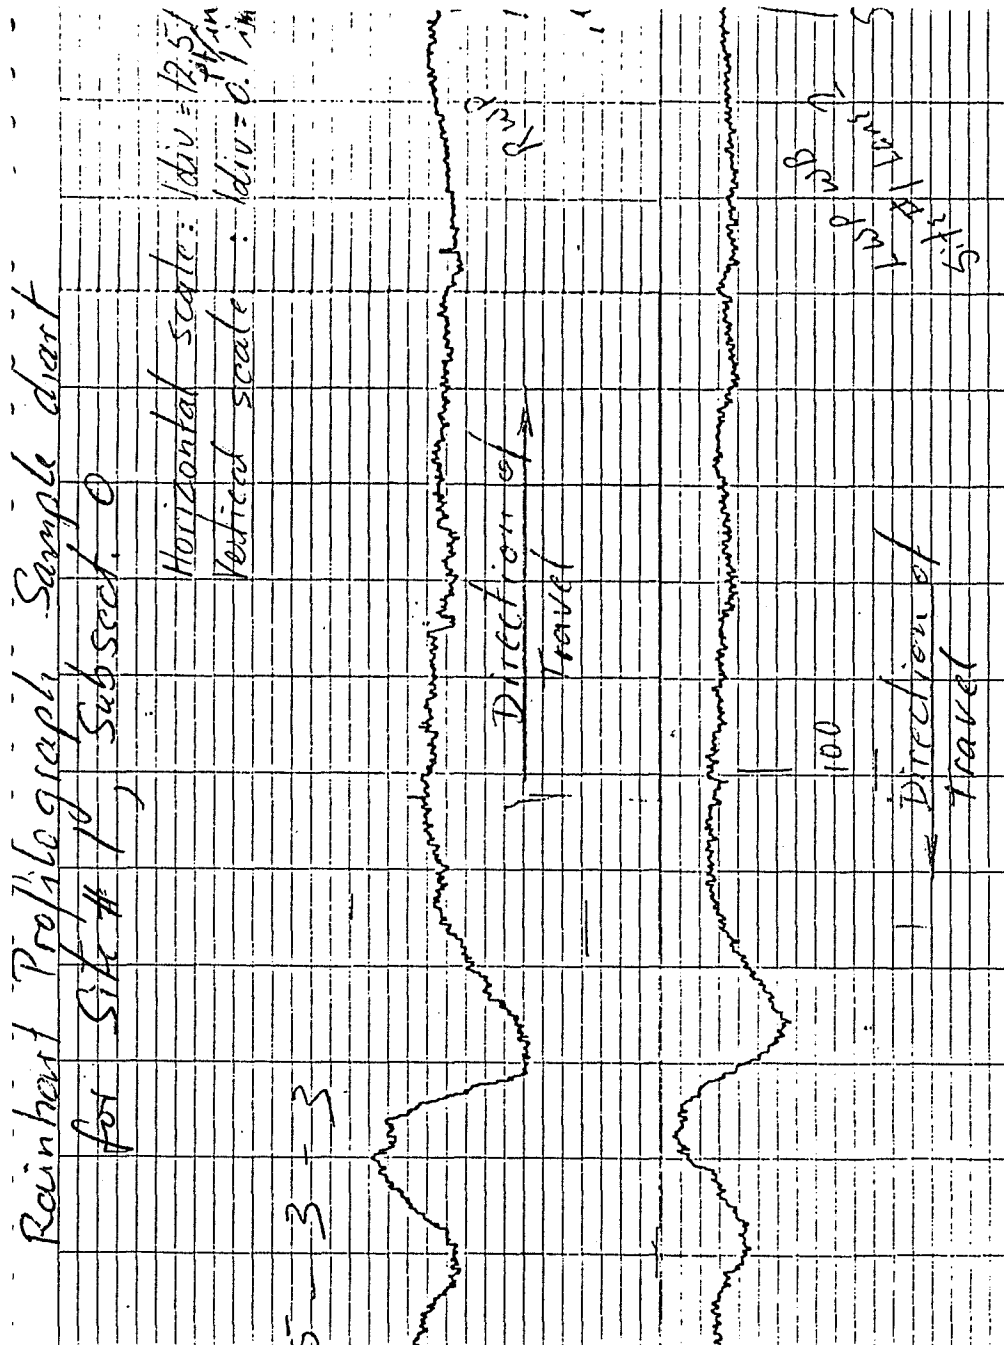 Rainhart Profilograph Sample chart
for Site # 10, Subsect. 0
Horizontal scale: 1div = 12.5 ft/in
Vertical scale : 1div = 0.1 in
RWP
Direction of
Travel
3 - 3
LWP WB
Site
100
Direction of
Travel